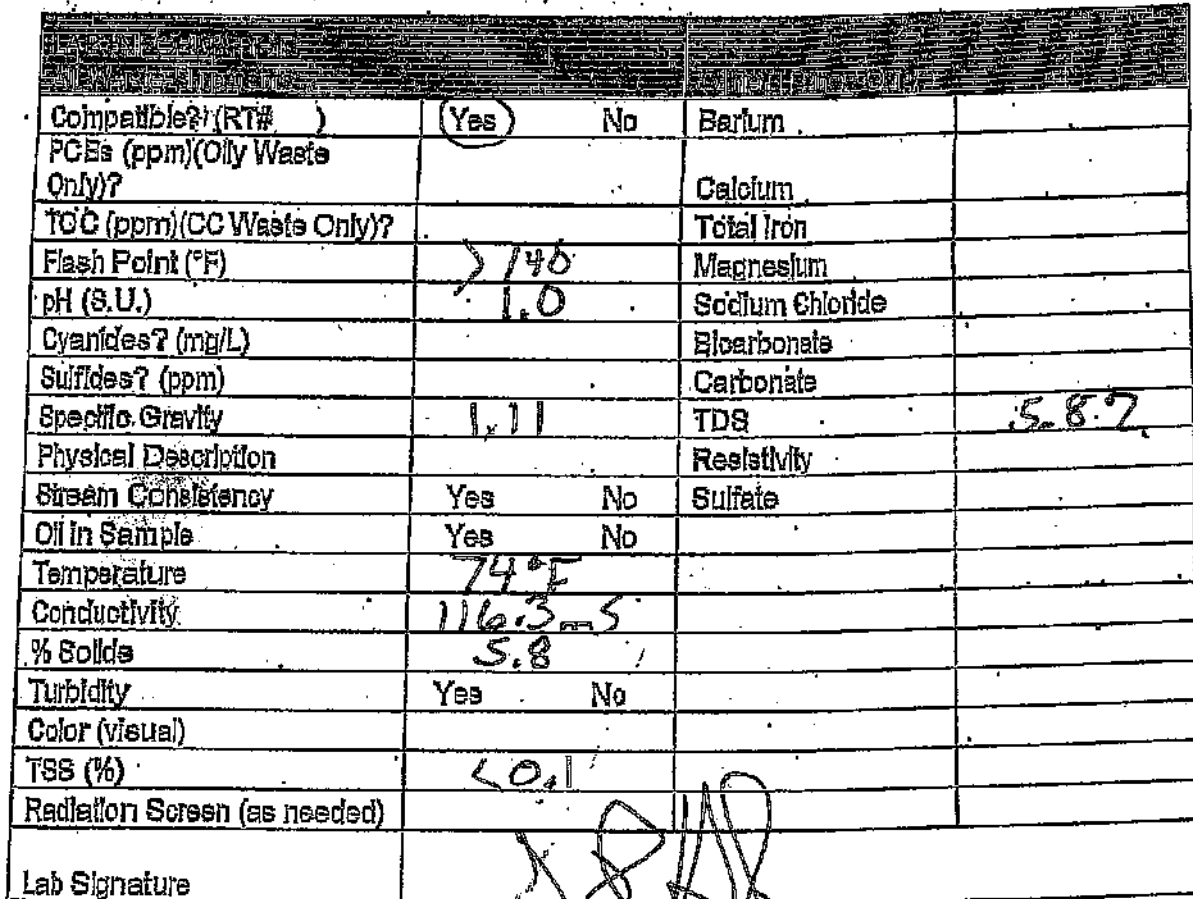 Compatible? (RT# ) Yes No Barium
PCBs (ppm)(Oily Waste
Only)? Calcium
TOC (ppm)(CC Waste Only)? Total Iron
Flash Point (°F) >140 Magnesium
pH (S.U.) 1.0 Sodium Chloride
Cyanides? (mg/L) Bicarbonate
Sulfides? (ppm) Carbonate
Specific Gravity 1.11 TDS 5.82
Physical Description Resistivity
Stream Consistency Yes No Sulfate
Oil in Sample Yes No
Temperature 74°F
Conductivity 116.3 mS
% Solids 5.8
Turbidity Yes No
Color (visual)
TSS (%) <0.1
Radiation Screen (as needed)
Lab Signature